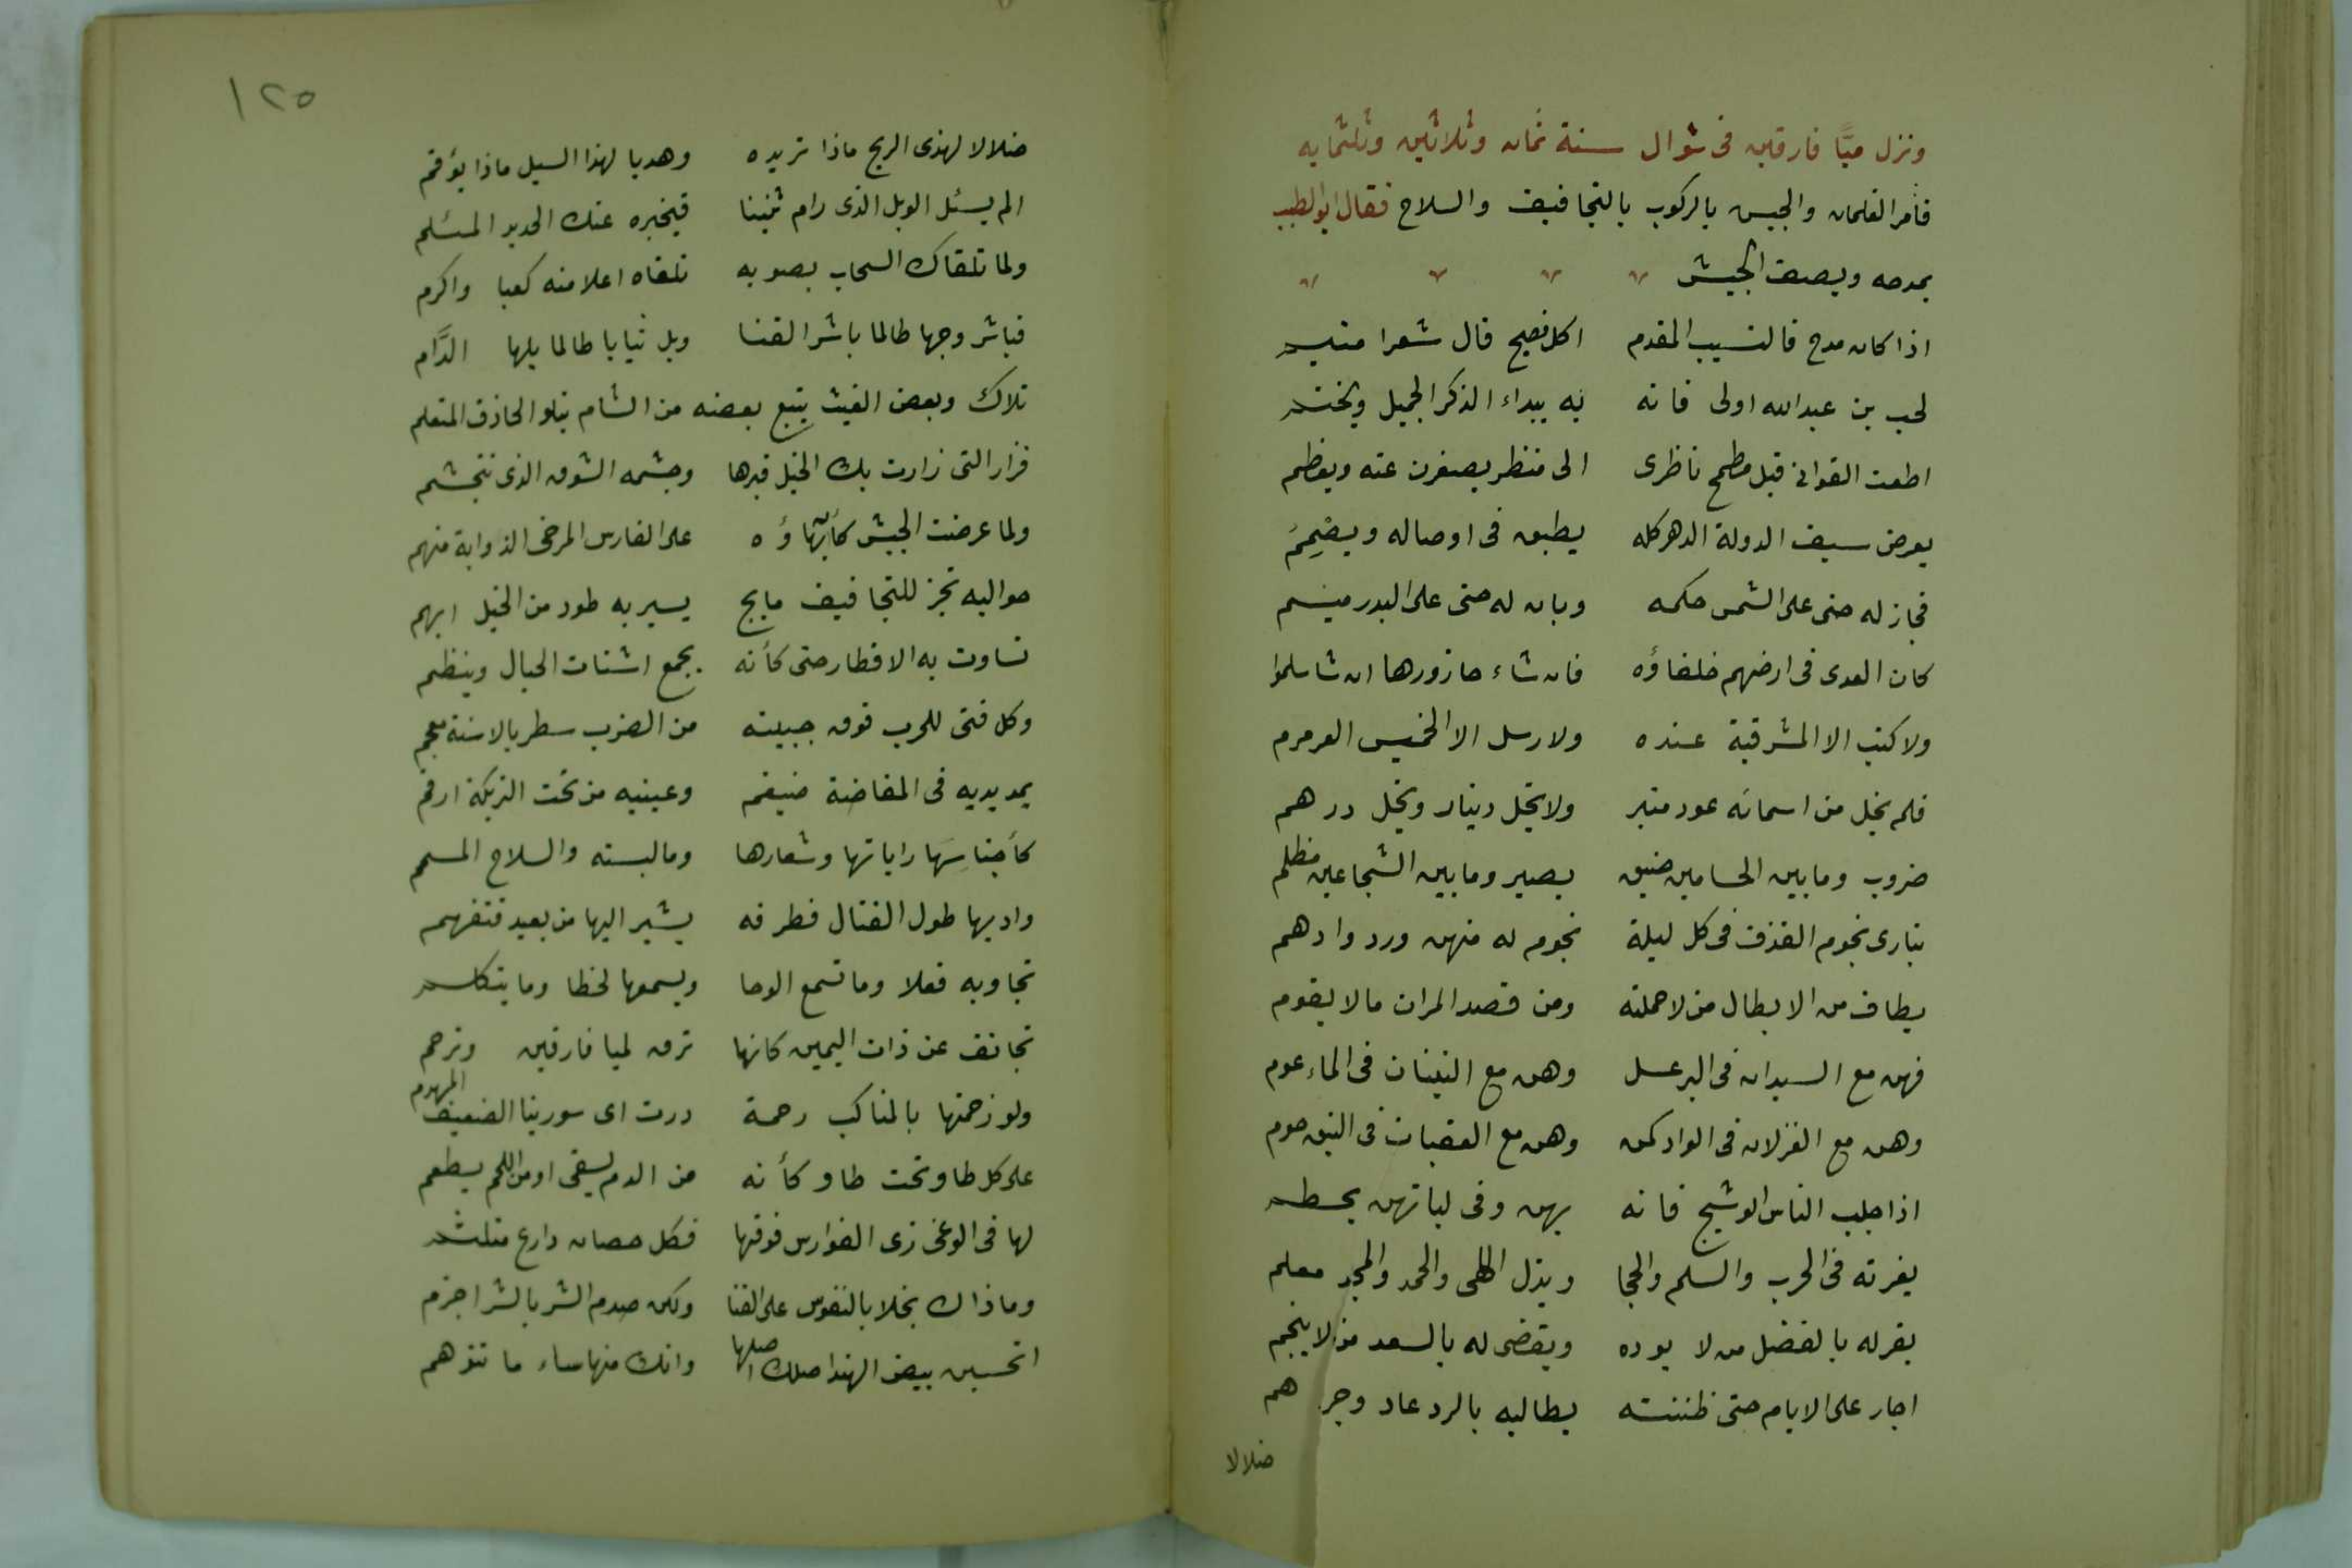 ونزل ميًّا فارقين فى شوال سنة ثمان وثلاثين وثلثمايه
فأمر الغلمان والجيس بالركوب بالتجافيف والسلاح فقال ابو الطيب
يمدحه ويصف الجيش
اذا كان مدح فالنسيب المقدم اكل فصيح قال شعرا متيم
لحب بن عبدالله اولى فانه به يبداء الذكر الجميل ويختم
اطعت القوانى قبل مطمح ناظرى الى منظر يصغرن عنه ويعظم
يعرض سيف الدولة الدهر كله يطبق فى اوصاله ويصمم
فجاز له حتى على الشمس حكمه وبان له حتى على البدر ميسم
كان العدى فى ارضهم خلفاؤه فان شاء حازورها ان شا سلموا
ولا كتب الا المشرفية عنده ولا رسل الا الخميس العرمرم
فلم يخل من اسمائه عود منبر ولا يخل دينار ويخل درهم
ضروب وما بين الحسامين ضيق بصير وما بين الشجاعين مظلم
تبارى نجوم القذف فى كل ليلة نجوم له منهن ورد وادهم
يطاف من الابطال من لا حملنه ومن قصد المران ما لا يقوم
فهن مع السيدان فى البر عسل وهن مع النينان فى الماء عوم
وهن مع الغزلان فى الواد كمن وهن مع العقبان فى النيق حوم
اذا جلب الناس الوشيج فانه بهن وفى لباتهن يحطم
بغرته فى الحرب والسلم والحجا وبذل اللهى والحمد والمجد معلم
يقر له بالفضل من لا يوده ويقضى له بالسعد من لا ينجم
اجار على الايام حتى ظننته يطالبه بالرد عاد وجرهم
ضلالا
١٢٥
ضلالا لهذى الريح ماذا تريده وهديا لهذا السيل ماذا يؤقم
الم يسئل الوبل الذى رام ثنينا فيخبره عنك الحديد المسئلم
ولما تلقاك السحاب بصوبه تلقاه اعلا منه كعبا واكرم
فباشر وجها طالما باشر القنا وبل ثيابا طالما بلها الدَّام
تلاك وبعض الغيث يتبع بعضه من الشام يتلو الحاذق المتعلم
فزار التى زارت بك الخيل قبرها وجشمه الشوق الذى تتجشم
ولما عرضت الجيش كان بهاؤه على الفارس المرخى الذوابة منهم
حواليه بحر للتجافيف مايج يسير به طود من الخيل ايهم
تساوت به الاقطار حتى كأنه يجمع اشتات الجبال وينظم
وكل فتى للحرب فوق جبينه من الضرب سطر بالاسنة معجم
يمد يديه فى المفاضة ضيغم وعينيه من تحت التريكة ارقم
كأجناسِهَا راياتها وشعارها وما لبسته والسلاح المسمم
وادبها طول القتال فطرفه يشير اليها من بعيد فتفهم
تجاوبه فعلا وما تسمع الوحا ويسمعها لحظا وما يتكلم
تجانف عن ذات اليمين كانها ترق لميا فارقين وترحم
ولو زحمتها بالمناكب رحمة درت اى سورينا الضعيف المهدم
على كل طاو تحت طاو كأنه من الدم يسقى او من اللحم يطعم
لها فى الوغى زى الفوارس فوقها فكل حصان دارع متلثم
وما ذاك بخلا بالنفوس على القنا ولكن صدم الشر بالشر اجزم
اتحسبن بيض الهند اصلك اصلها وانك منها ساء ما تتوهم